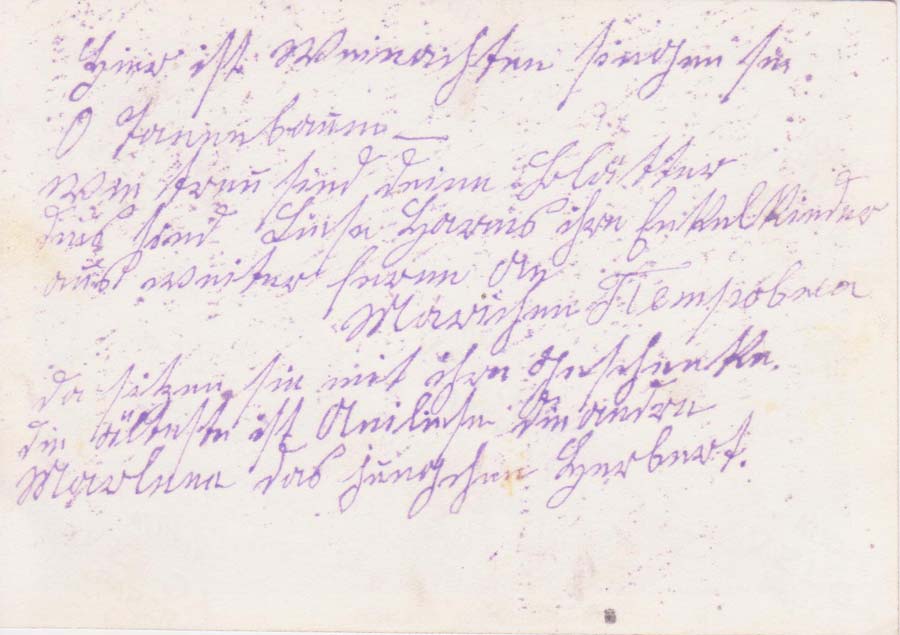 Hier ist Weinachten singen sie
O Tanenbaum —
wie treu sind deine Blätter
das sind Liese Harms ihre Enkelkinder
aus weiter ferne an
Mariechen Петровна
da sitzen sie mit ihre Geschenke.
die älteste ist Aniliese die andre
Marlene das jungchen Herbert.